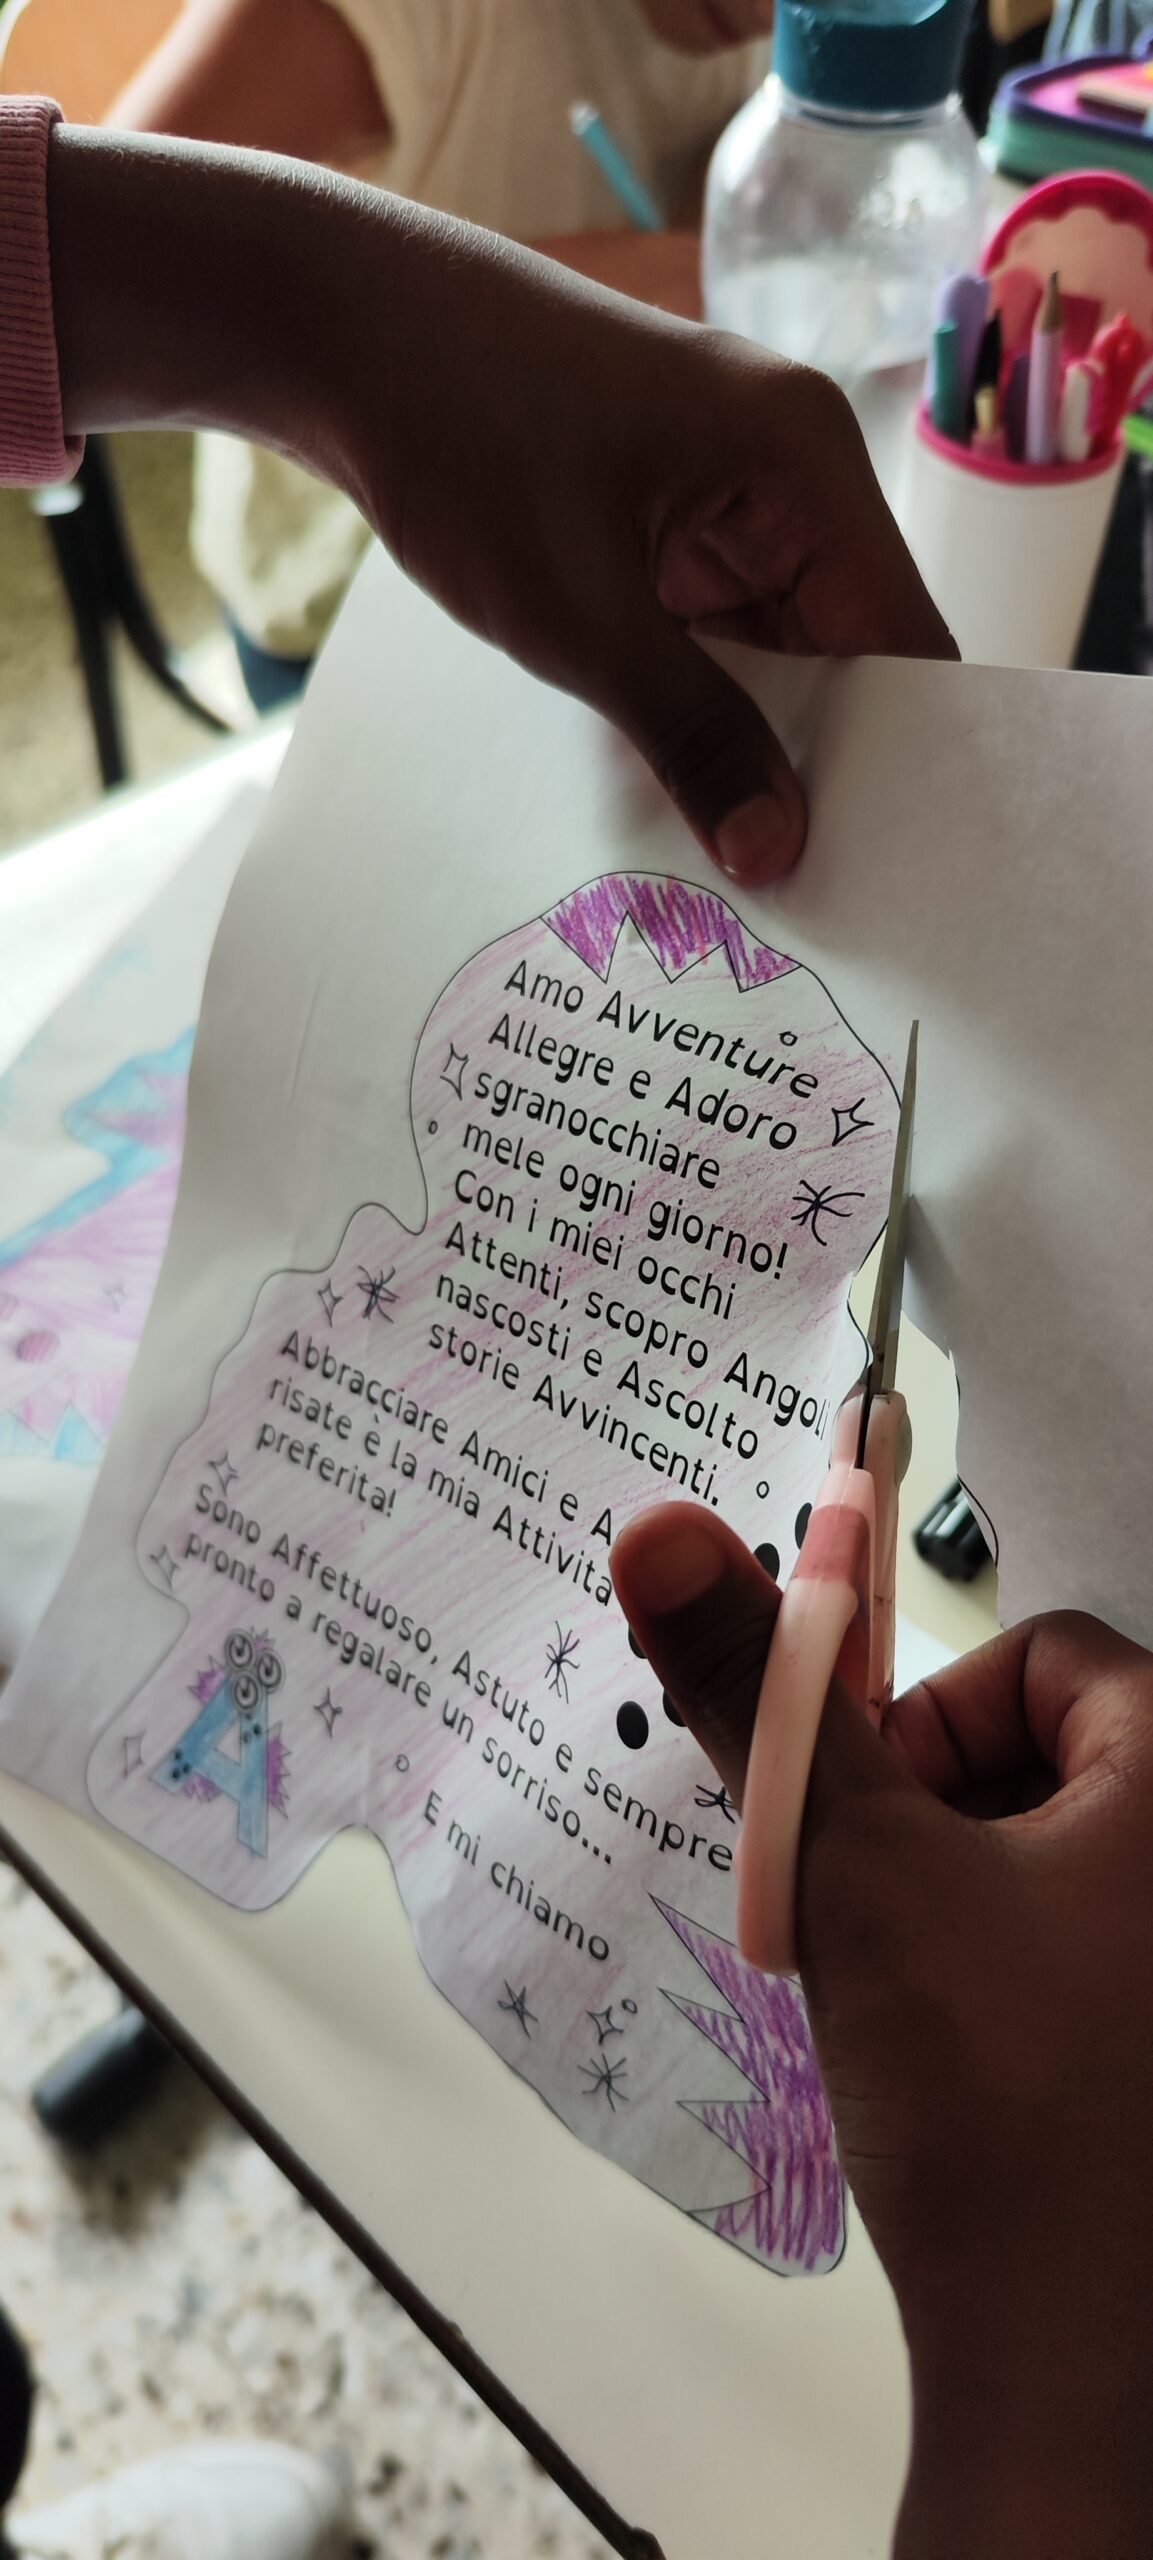 Amo Avventure
Allegre e Adoro
sgranocchiare
mele ogni giorno!
Con i miei occhi
Attenti, scopro Angoli
nascosti e Ascolto
storie Avvincenti.
Abbracciare Amici e
risate è la mia Attività
preferita!
Sono Affettuoso, Astuto e sempre
pronto a regalare un sorriso...
E mi chiamo
A